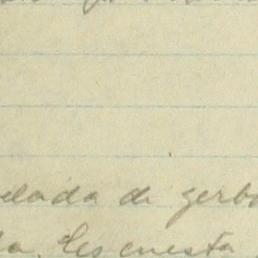 elada de gerbo
la. Les cuesta